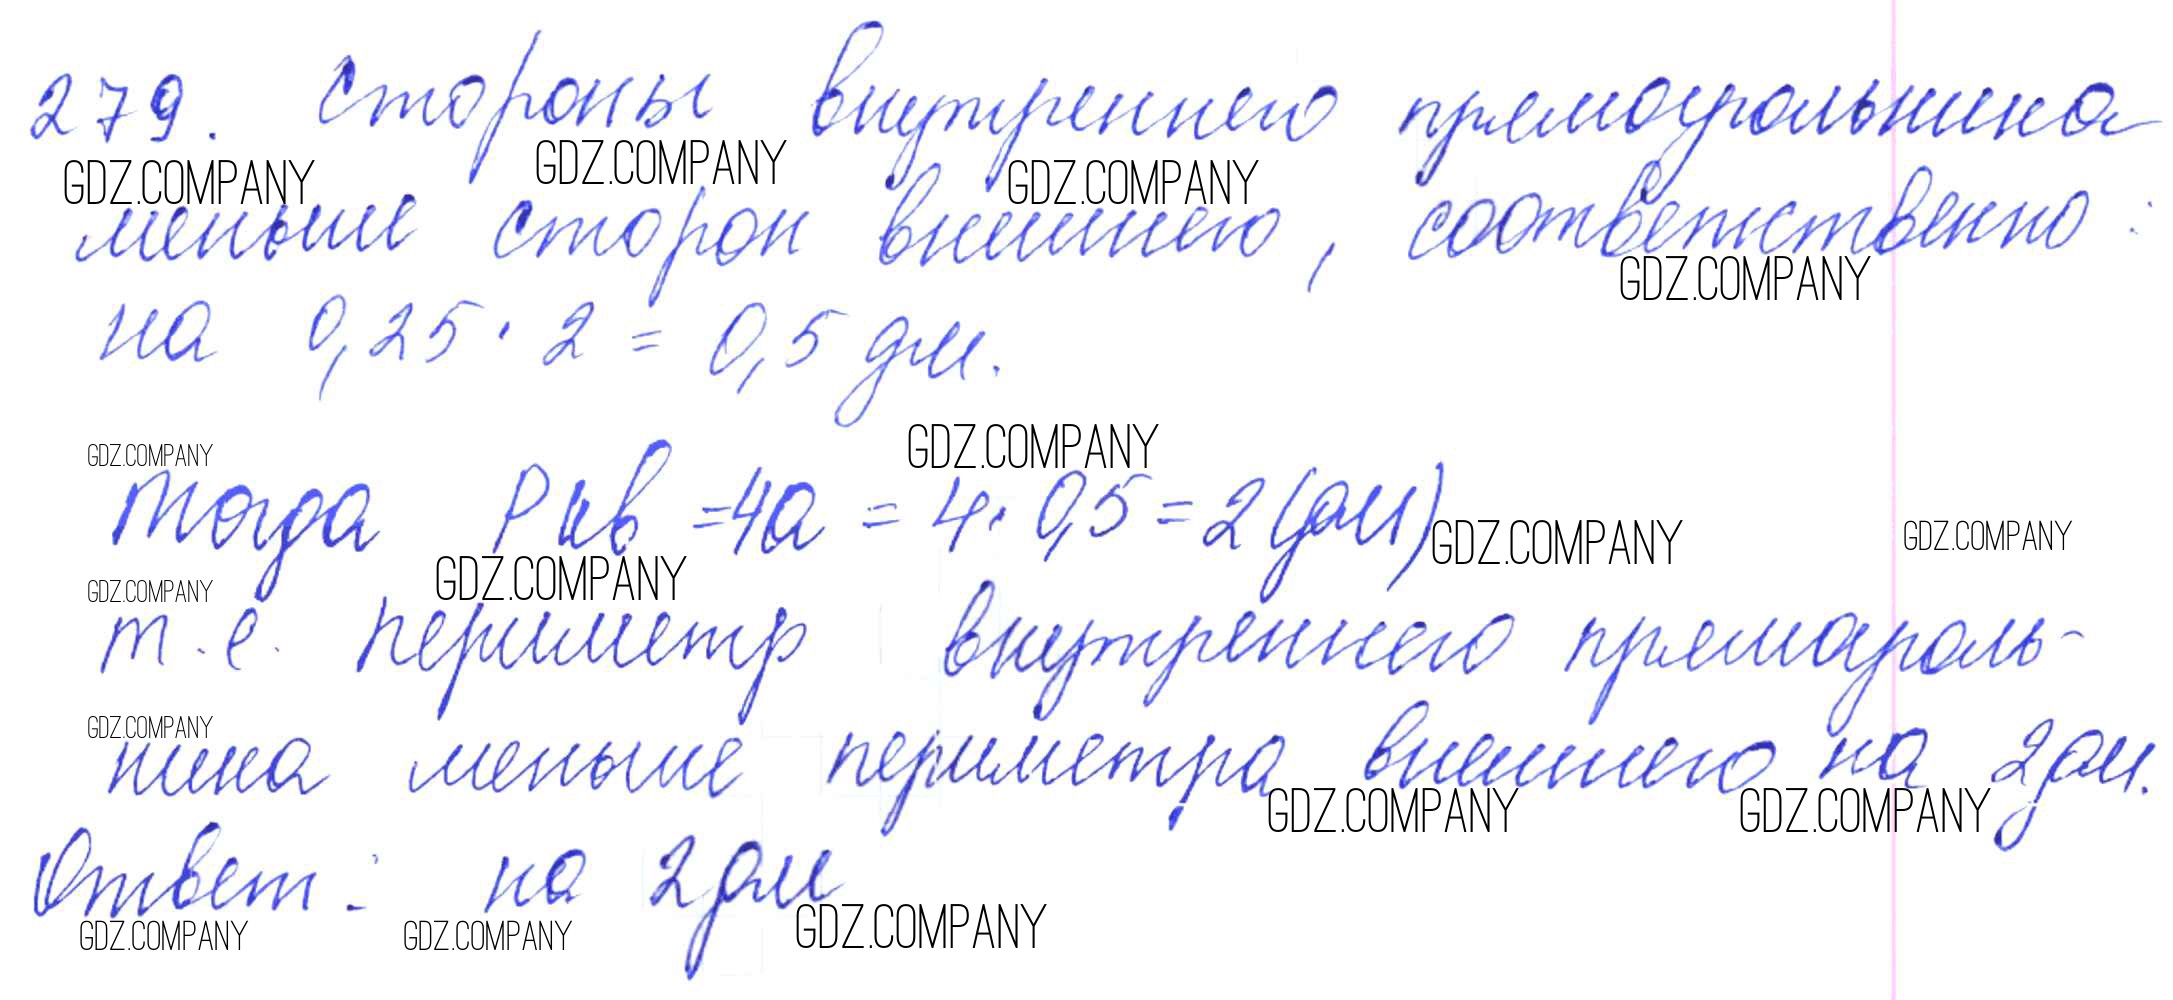 279. Стороны внутреннего прямоугольника
GDZ.COMPANY GDZ.COMPANY GDZ.COMPANY
меньше сторон внешнего, соответственно:
GDZ.COMPANY
на 0,25 · 2 = 0,5 дм.
GDZ.COMPANY GDZ.COMPANY
Тогда P кв = 4a = 4 · 0,5 = 2 (дм)
GDZ.COMPANY GDZ.COMPANY GDZ.COMPANY GDZ.COMPANY
т.е. периметр внутреннего прямоуголь-
GDZ.COMPANY
ника меньше периметра внешнего на 2 дм.
GDZ.COMPANY GDZ.COMPANY
Ответ: на 2 дм
GDZ.COMPANY GDZ.COMPANY GDZ.COMPANY